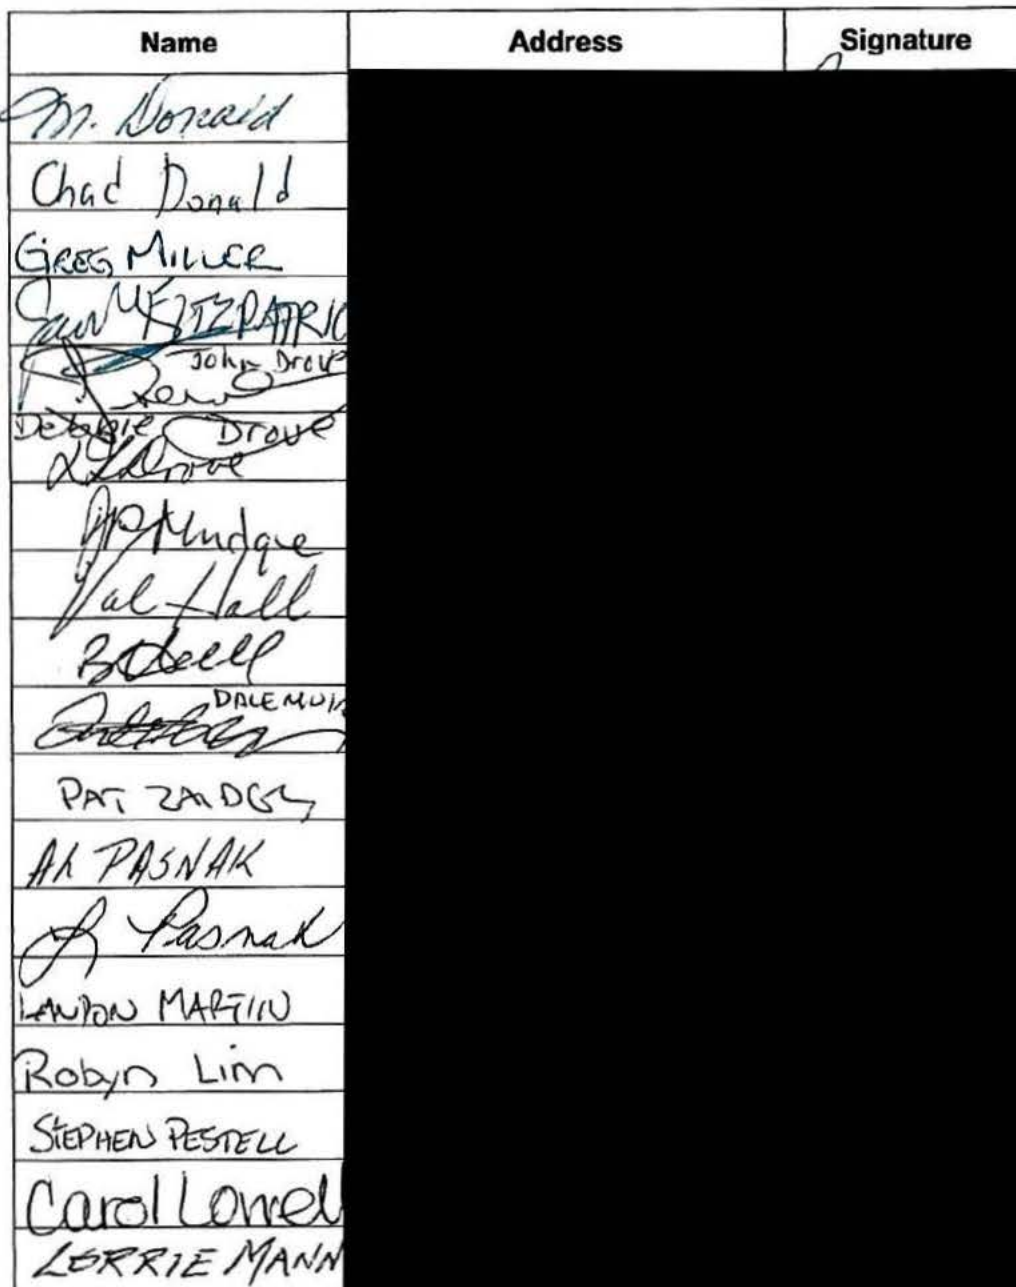 Name Address Signature
M. Donald
Chad Donald
GREG MILLER
FITZPATRIC
John Drove
Debbie Drove
Drove
Mudge
Val Hall
DALE MUIR
PAT
AL PASNAK
L Pasnak
LANDON MARTIN
Robyn Lim
STEPHEN PESTELL
Carol Lowell
LORRIE MANN